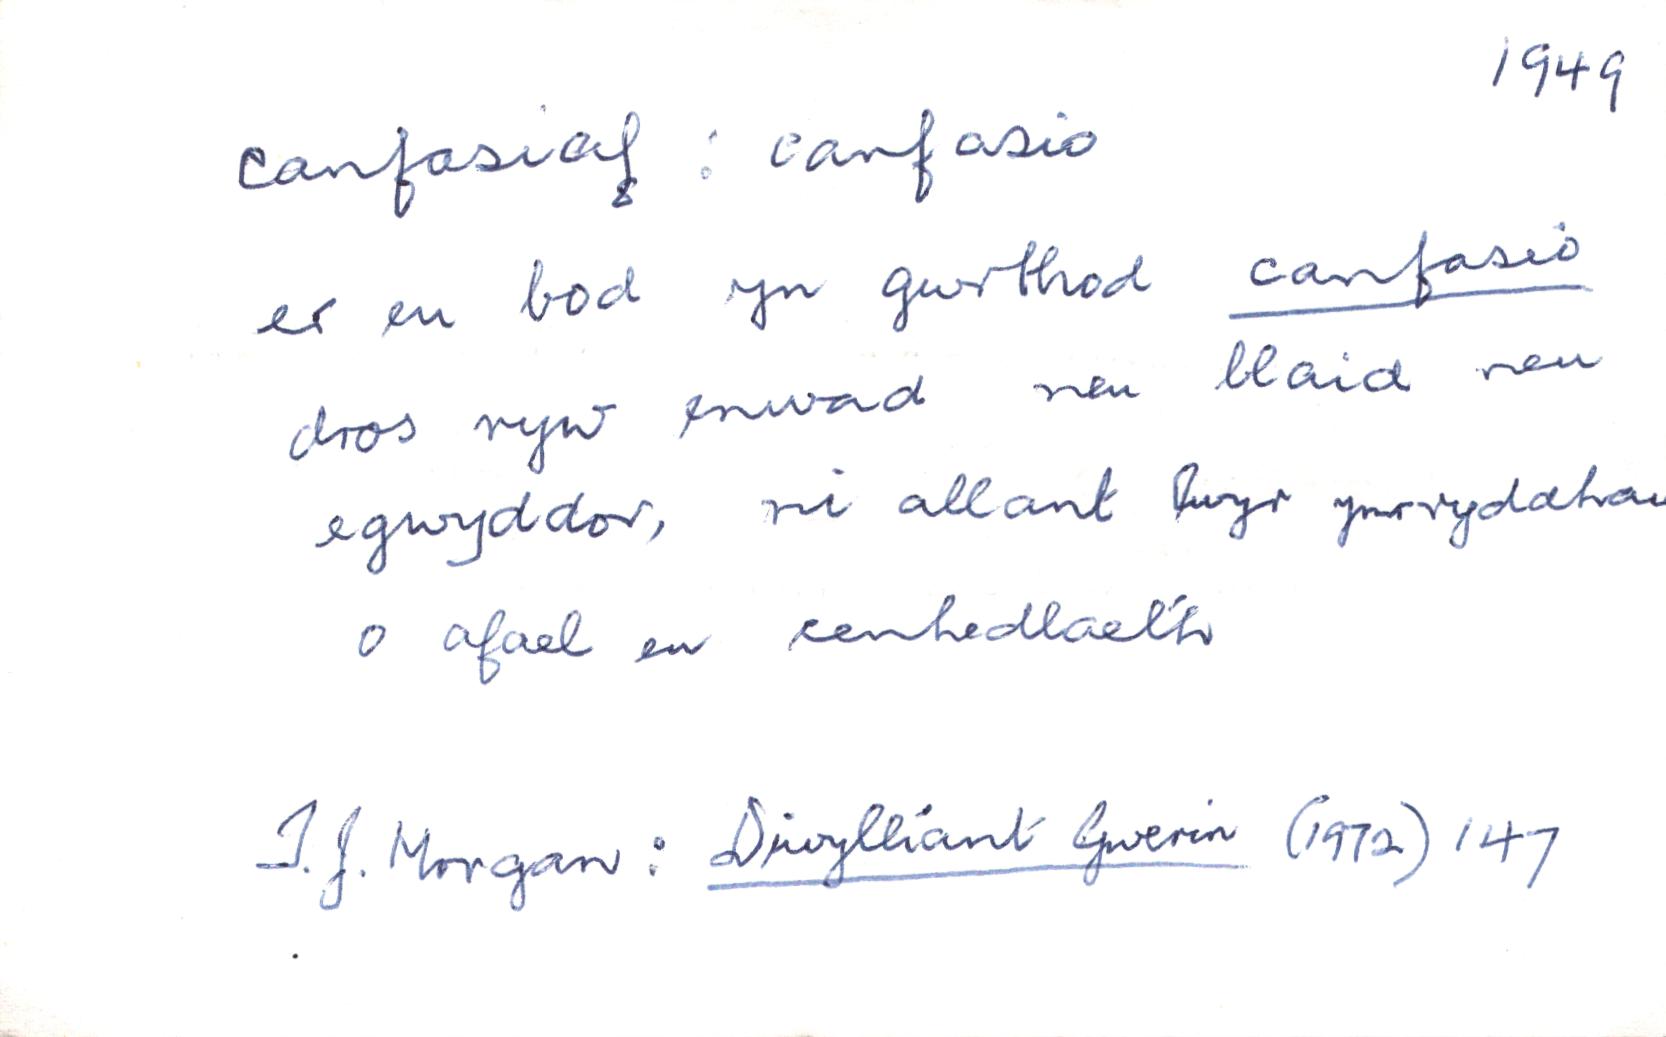 1949
canfasiaf : canfasio
er eu bod yn gwrthod canfasio
dros ryw enwad neu blaid neu
egwyddor, ni allant lwyr ymryddhau
o afael eu cenhedlaeth
T. J. Morgan: Diwylliant Gwerin (1972) 147